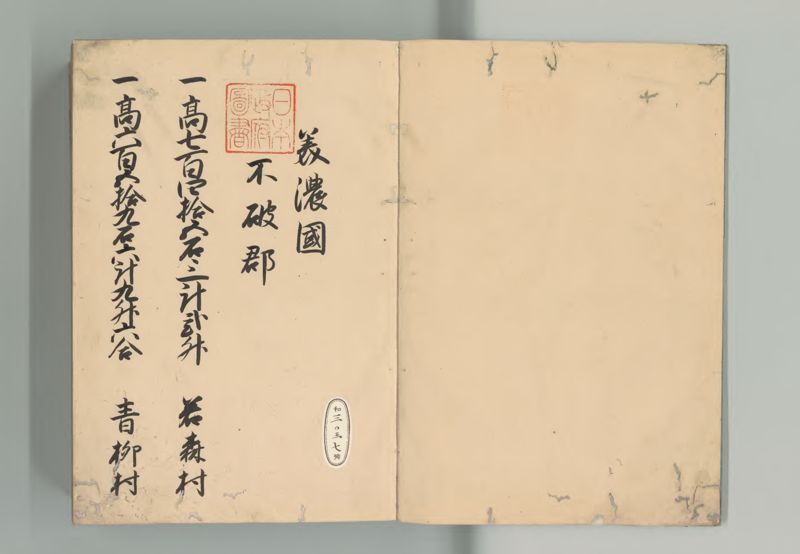 美濃國
不破郡
日本
政府
圖書
一高七百四拾五石三斗弐升 若森村
一高六百五拾九石六斗九升六合 青柳村
和
三〇五七